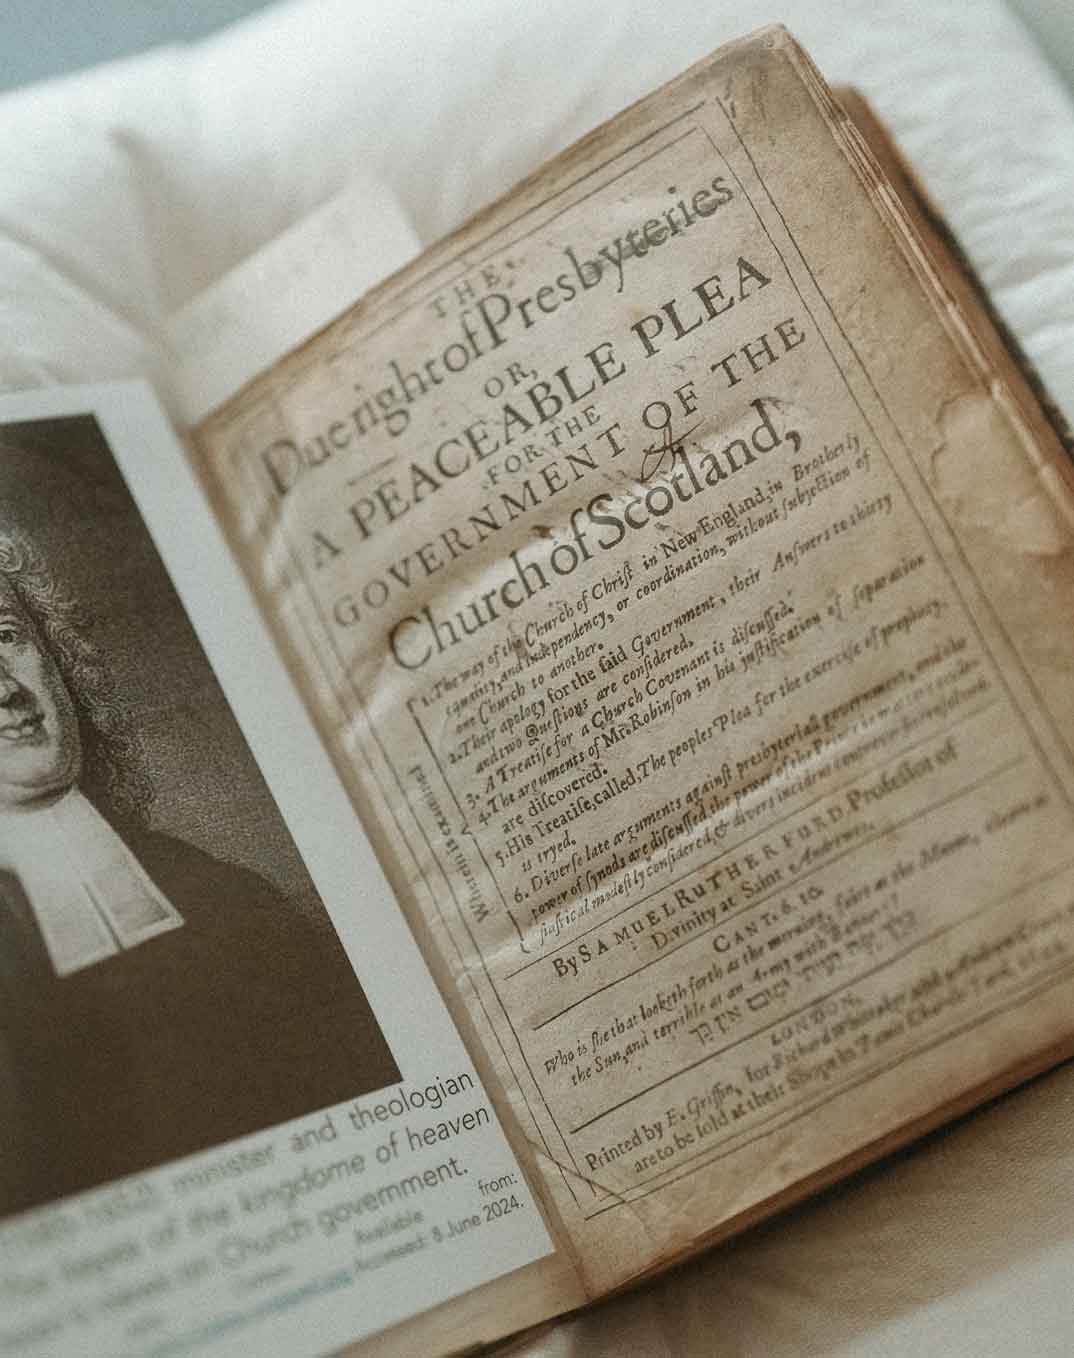 minister and theologian
of the kingdome of heaven
on Church government.
Available from:
Accessed: 8 June 2024.
THE
Due right of Presbyteries
OR,
A PEACEABLE PLEA
FOR THE
GOVERNMENT OF THE
Church of Scotland,
Wherein is examined
1. The way of the Church of Chriſt in New England, in Brotherly
equality, and independency, or coordination, without ſubjection of
one Church to another.
2. Their apology for the ſaid Government, their Anſwers to thirty
and two Queſtions are conſidered.
3. A Treatiſe for a Church Covenant is diſcuſſed.
4. The arguments of Mr. Robinſon in his juſtification of ſeparation
are diſcovered.
5. His Treatiſe, called, The peoples Plea for the exerciſe of prophecy,
is tryed.
6. Diverſe late arguments againſt presbyteriall government, and the
power of ſynods are diſcuſſed, the power of the Prince in matters eccle-
ſiaſtical modeſtly conſidered, & divers incident controverſies reſolved.
By SAMUEL RUTHERFURD Profeſſor of
Divinity at Saint Andrewes.
CANT. 6. 10.
Who is ſhe that looketh forth as the morning, faire as the Moone, cleare as
the Sun, and terrible as an Army with Banners?
LONDON,
Printed by E. Griffin, for Richard Whittaker and Andrew Crook
are to be ſold at their Shops in Pauls Church-Yard